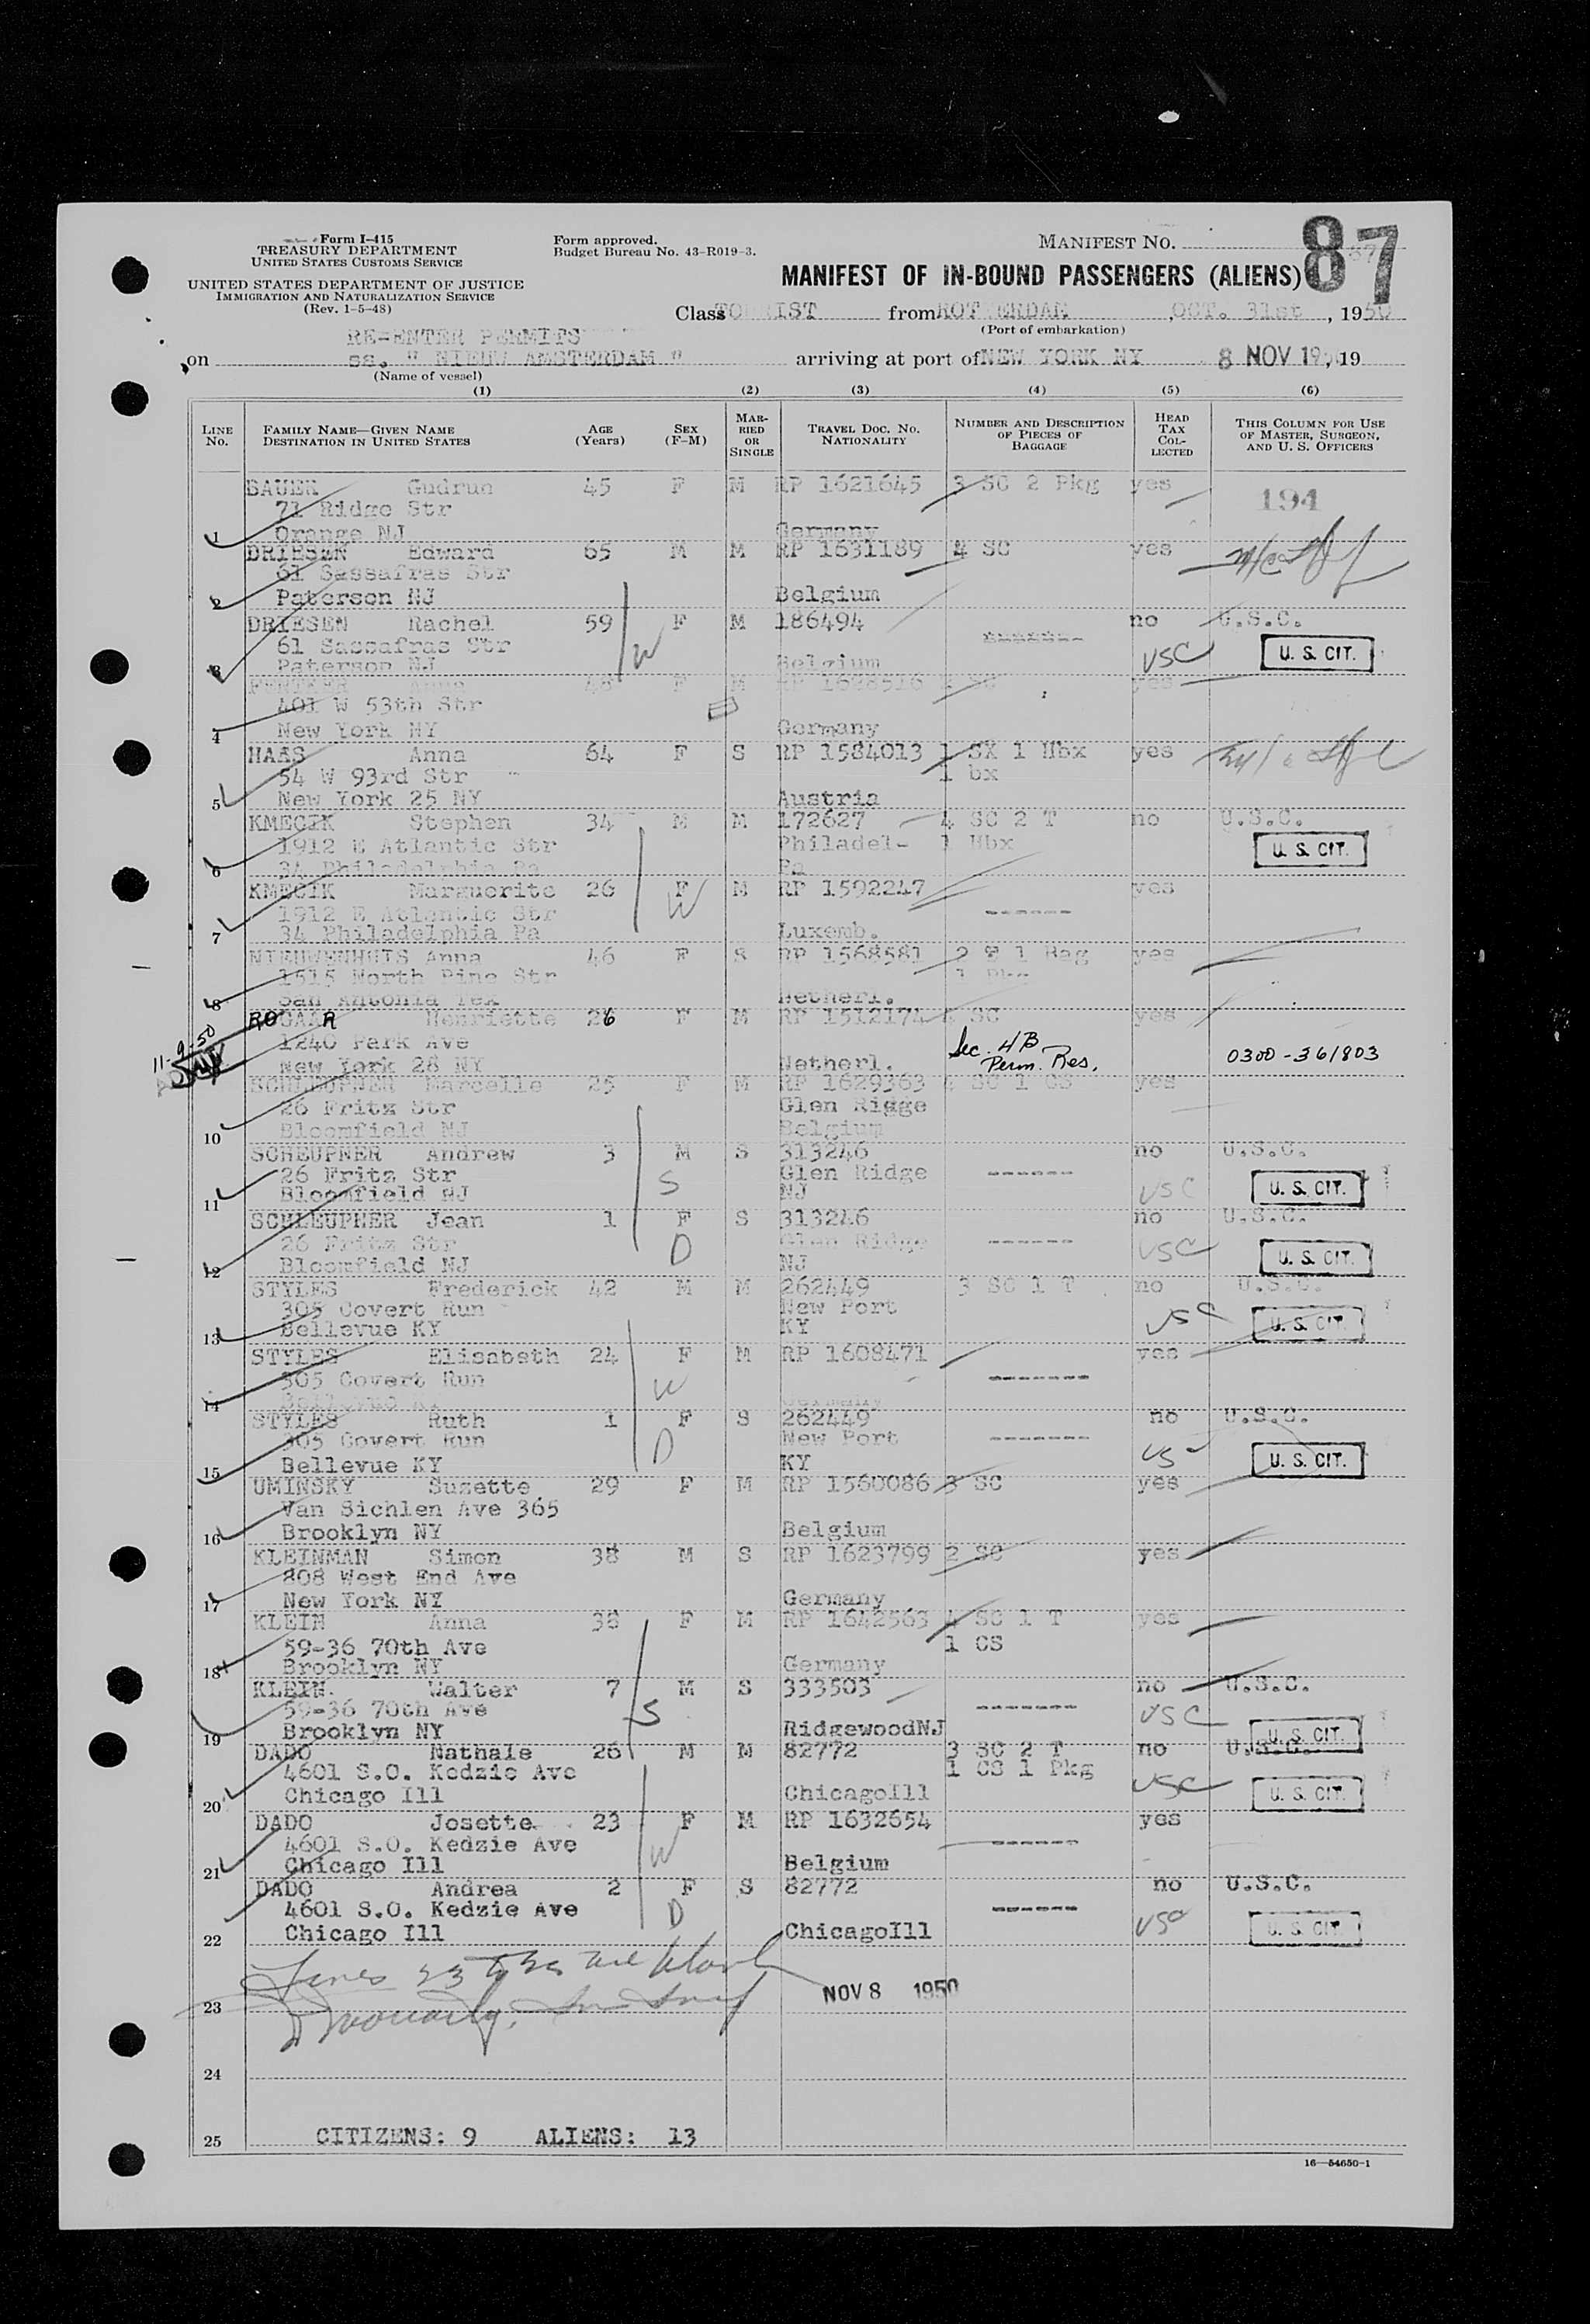 Form I-415
TREASURY DEPARTMENT
UNITED STATES CUSTOMS SERVICE
UNITED STATES DEPARTMENT OF JUSTICE
IMMIGRATION AND NATURALIZATION SERVICE
(Rev. 1-5-48)
Form approved.
Budget Bureau No. 43-R019-3.
MANIFEST NO. 87
MANIFEST OF IN-BOUND PASSENGERS (ALIENS)
Class TOURIST from ROTTERDAM, OCT. 31st, 1950
(Port of embarkation)
RE-ENTER PERMITS
on ss. " NIEUW AMSTERDAM " arriving at port of NEW YORK NY 8 NOV 1950, 19
(Name of vessel)
(1) (2) (3) (4) (5) (6)
LINE No. FAMILY NAME—GIVEN NAME DESTINATION IN UNITED STATES AGE (Years) SEX (F-M) MARRIED OR SINGLE TRAVEL DOC. NO. NATIONALITY NUMBER AND DESCRIPTION OF PIECES OF BAGGAGE HEAD TAX COLLECTED THIS COLUMN FOR USE OF MASTER, SURGEON, AND U. S. OFFICERS
SAUER Gudrun 45 F M RP 1621645 3 SC 2 Pkg yes
71 Ridge Str 194
1 Orange NJ Germany
DRIESEN Edward 65 M M RP 1631189 4 SC yes
61 Sassafras Str
2 Paterson NJ Belgium
DRIESEN Rachel 59 F M 186494 no U.S.C.
61 Sassafras Str ------- 
3 Paterson NJ W Belgium USC U. S. CIT.
Anna 48 F M RP 1628516 SC yes
401 W 53th Str
4 New York NY Germany
HAAS Anna 64 F S RP 1584013 1 SX 1 Hbx yes
54 W 93rd Str 1 bx
5 New York 25 NY Austria
KMECIK Stephen 34 M M 172627 4 SC 2 T no U.S.C.
1912 E Atlantic Str Philadel- 1 Hbx U. S. CIT.
6 34 Philadelphia Pa Pa
KMECIK Marguerite 26 F M RP 1592247 yes
1912 E Atlantic Str W ------
7 34 Philadelphia Pa Luxemb.
NIEUWENHUIS Anna 46 F S RP 1568581 2 T 1 Bag yes
1515 North Pine Str 1 Pkg
8 San Antonia Tex Netherl.
ROGAAR Henriette 26 F M RP 1512174 SC yes
11-9-50 1240 Park Ave Sec. 4B
New York 28 NY Netherl. Perm. Res. 0300-361803
SCHLEUPNER Marcelle 25 F M RP 1629363 4 SC 1 CS yes
26 Fritz Str Glen Rigge
10 Bloomfield NJ Belgium
SCHEUPNER Andrew 3 M S 313246 no U.S.C.
26 Fritz Str S Glen Ridge ------
11 Bloomfield NJ NJ USC U. S. CIT.
SCHLEUPNER Jean 1 F S 313246 no U.S.C.
26 Fritz Str D Glen Ridge ------
12 Bloomfield NJ NJ USC U. S. CIT.
STYLES Frederick 42 M M 262449 3 SC 1 T no U.S.C.
305 Covert Run New Port
13 Bellevue KY KY USC U. S. CIT.
STYLES Elisabeth 24 F M RP 1608471 yes
305 Covert Run W -------
14 Bellevue KY Germany
STYLES Ruth 1 F S 262449 no U.S.C.
305 Covert Run D New Port -------
15 Bellevue KY KY U. S. CIT.
UMINSKY Suzette 29 F M RP 1560086 3 SC yes
Van Sichlen Ave 365
16 Brooklyn NY Belgium
KLEINMAN Simon 38 M S RP 1623799 2 SC yes
808 West End Ave
17 New York NY Germany
KLEIN Anna 38 F M RP 1642563 4 SC 1 T yes
59-36 70th Ave 1 CS
18 Brooklyn NY Germany
KLEIN. Walter 7 M S 333503 no U.S.C.
59-36 70th Ave S ------- USC
19 Brooklyn NY RidgewoodNJ U. S. CIT.
DADO Nathale 26 M M 82772 3 SC 2 T no U.S.C.
4601 S.O. Kedzie Ave 1 CS 1 Pkg
20 Chicago Ill ChicagoIll USC U. S. CIT.
DADO Josette 23 F M RP 1632654 yes
4601 S.O. Kedzie Ave W ------
21 Chicago Ill Belgium
DADO Andrea 2 F S 82772 no U.S.C.
4601 S.O. Kedzie Ave D ------
22 Chicago Ill ChicagoIll USC U. S. CIT.
Lines 23 to 25 are blank
NOV 8 1950
23
24
25 CITIZENS: 9 ALIENS: 13
16—54650-1